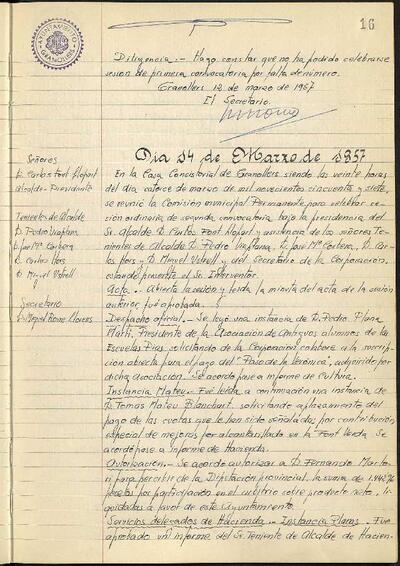 16
AYUNTAMIENTO
GRANOLLERS
Diligencia.- Hago constar que no ha podido celebrarse
sesion de primera convocatoria por falta de número.
Granollers 12 de marzo de 1957
El Secretario.
Día 14 de Marzo de 1957
Señores
D. Carlos Font Llopart
Alcalde-Presidente
Tenientes de Alcalde
D. Pedro Viaplana
D. José Mª Corbera
D. Carlos
D. Miguel
Secretario
D. Miguel Llorens
En la Casa Consistorial de Granollers siendo las veinte horas
del día catorce de marzo de mil novecientos cincuenta y siete,
se reunió la Comisión municipal Permanente para celebrar se-
sión ordinaria de segunda convocatoria bajo la presidencia del
Sr. Alcalde D. Carlos Font Llopart y asistencia de los señores Te-
nientes de Alcalde D. Pedro Viaplana, D. José Mª Corbera, D. Car-
los y D. Miguel y del Secretario de la Corporación,
estando presente el Sr. Interventor.
Acta.- Abierta la sesión y leida la minuta del acta de la sesión
anterior fue aprobada.
Despacho oficial.- Se leyó una instancia de D. Pedro Plana
Martí, Presidente de la Asociación de Antiguos alumnos de las
Escuelas Pías solicitando de la Corporación colabore a la suscrip-
ción abierta para el pago del "Paso de la Verónica", adquirido por
dicha Asociación. Se acordó pase a informe de Cultura.
Instancia Mateu.- Fue leida a continuación una instancia de
D. Tomás Mateu Blanchart, solicitando aplazamiento del
pago de las cuotas que le han sido señaladas por contribución
especial de mejoras por alcantarillado en la Font Verda. Se
acordó pase a informe de Hacienda.
Autorización.- Se acordó autorizar a D. Fernando
para percibir de la Diputación provincial, la suma de
pesetas por participación en el arbitrio sobre producto neto, li-
quidadas a favor de este Ayuntamiento.
Servicios delegados de Hacienda.- Instancia Plans.- Fue
aprobado un informe del Sr. Teniente de Alcalde de Hacien-